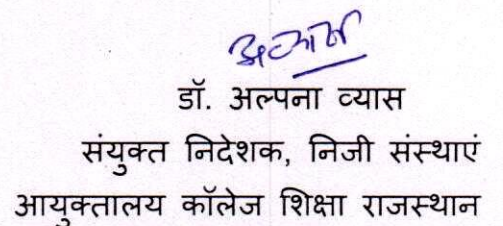 डॉ. अल्पना व्यास
संयुक्त निदेशक, निजी संस्थाएं
आयुक्तालय कॉलेज शिक्षा राजस्थान